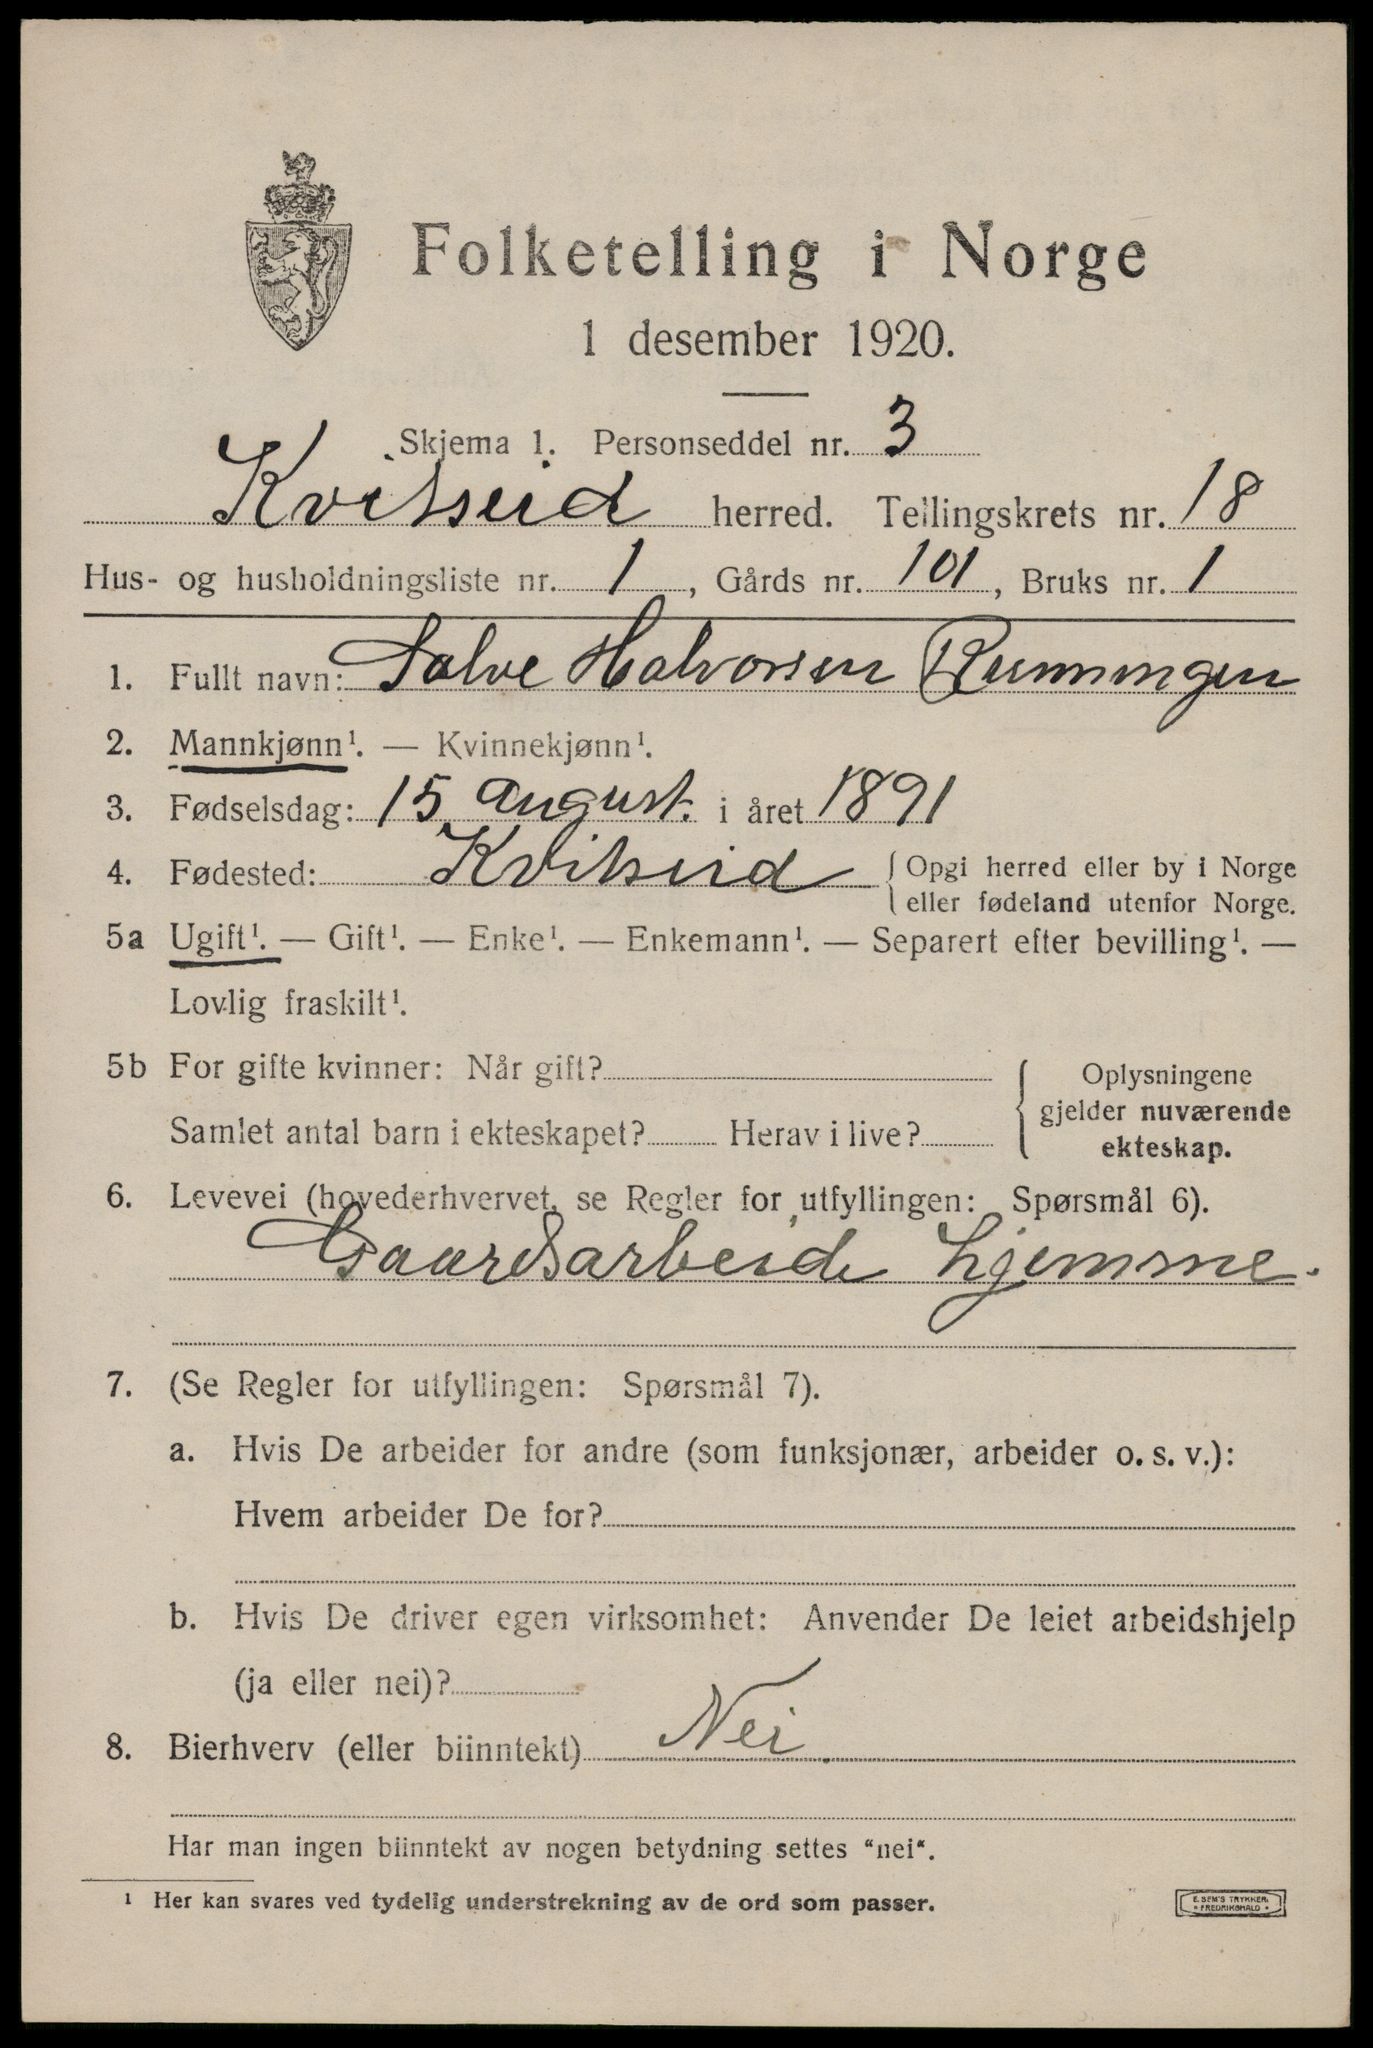 Folketelling i Norge
1 desember 1920.
Skjema 1. Personseddel nr. 3
Kvitseid herred. Tellingskrets nr. 18
Hus- og husholdningsliste nr. 1, Gårds nr. 101, Bruks nr. 1
1. Fullt navn: Salve Halvorsen
2. Mannkjønn¹. — Kvinnekjønn¹.
3. Fødselsdag: 15 august. i året 1891
4. Fødested: Kvitseid { Opgi herred eller by i Norge
eller fødeland utenfor Norge.
5a Ugift¹. — Gift¹. — Enke¹. — Enkemann¹. — Separert efter bevilling¹. —
Lovlig fraskilt¹.
5b For gifte kvinner: Når gift?
Samlet antal barn i ekteskapet? Herav i live?
Oplysningene
gjelder nuværende
ekteskap.
6. Levevei (hovederhvervet, se Regler for utfyllingen: Spørsmål 6).
Gaardsarbeide hjemme.
7. (Se Regler for utfyllingen: Spørsmål 7).
a. Hvis De arbeider for andre (som funksjonær, arbeider o. s. v.):
Hvem arbeider De for?
b. Hvis De driver egen virksomhet: Anvender De leiet arbeidshjelp
(ja eller nei)?
8. Bierhverv (eller biinntekt) Nei.
Har man ingen biinntekt av nogen betydning settes "nei".
¹ Her kan svares ved tydelig understrekning av de ord som passer.
E. SEM'S TRYKKERI
* FREDRIKSHALD *